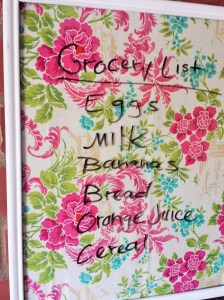 Grocery List
Eggs
Milk
Bananas
Bread
Orange Juice
Cereal